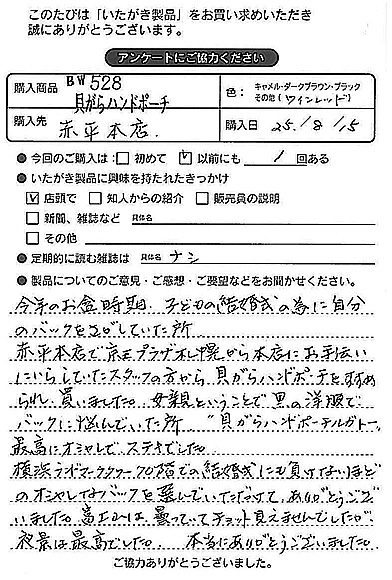 このたびは「いたがき製品」をお買い求めいただき
誠にありがとうございます。
アンケートにご協力ください
購入商品 BW528
貝がらハンドポーチ
色： キャメル・ダークブラウン・ブラック
その他（ワインレッド）
購入先 赤平本店.
購入日 25.／8／15
● 今回のご購入は：□ 初めて ☑ 以前にも 1 回ある
● いたがき製品に興味を持たれたきっかけ
☑ 店頭で □ 知人からの紹介 □ 販売員の説明
□ 新聞、雑誌など 具体名
□ その他
● 定期的に読む雑誌は 具体名 ナシ
● 製品についてのご意見・ご感想・ご要望などをお聞かせください。
今年のお盆時期、子どもの結婚式の為に自分
のバックをさがしていた所
赤平本店で京王プラザ札幌から本店にお手伝い
にいらしていたスタッフの方から、貝がらハンドポーチをすすめ
られ、買いました。母親ということで黒の洋服で
バックに悩んでいた所 "貝がらハンドポーチ
最高にオシャレで、ステキでした。
横浜ランドマークタワー70階での結婚式にも負けないほど
のオシャレなバックを選んでいただけて、ありがとうござ
いました。富士山は曇っていてチョット見えませんでしたが、
夜景は最高でした。 本当にありがとうございました。
ご協力ありがとうございました。